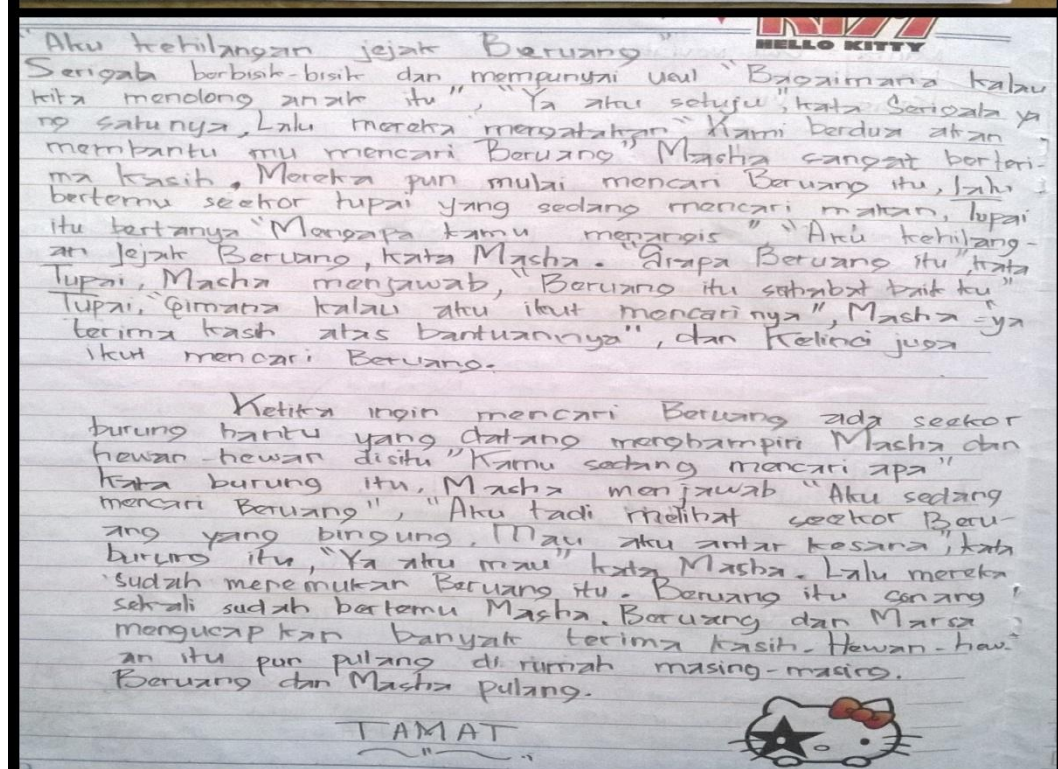 KISS
HELLO KITTY
"Aku kehilangan jejak Beruang"
Serigala berbisik-bisik dan mempunyai usul "Bagaimana kalau
kita menolong anak itu", "Ya aku setuju", kata Serigala ya
ng satunya, Lalu mereka mengatakan "Kami berdua akan
membantu mu mencari Beruang" Masha sangat berteri-
ma kasih, Mereka pun mulai mencari Beruang itu, lalu
bertemu seekor tupai yang sedang mencari makan, Tupai
itu bertanya "Mengapa kamu menangis", "Aku kehilang-
an Jejak Beruang, kata Masha. "Siapa Beruang itu", kata
Tupai, Masha menjawab, "Beruang itu sahabat baik ku"
Tupai, "Gimana kalau aku ikut mencari nya", Masha "ya
terima kasih atas bantuannya", dan Kelinci juga
ikut mencari Beruang.
Ketika ingin mencari Beruang ada seekor
burung hantu yang datang menghampiri Masha dan
hewan-hewan disitu "Kamu sedang mencari apa"
kata burung itu, Masha menjawab "Aku sedang
mencari Beruang", "Aku tadi melihat seekor Beru-
ang yang bingung. Mau aku antar kesana", kata
burung itu, "Ya aku mau" kata Masha. Lalu mereka
sudah menemukan Beruang itu. Beruang itu senang
sekali sudah bertemu Masha. Beruang dan Marsa
mengucap kan banyak terima kasih. Hewan-hew-
an itu pun pulang di rumah masing-masing.
Beruang dan Masha pulang.
TAMAT